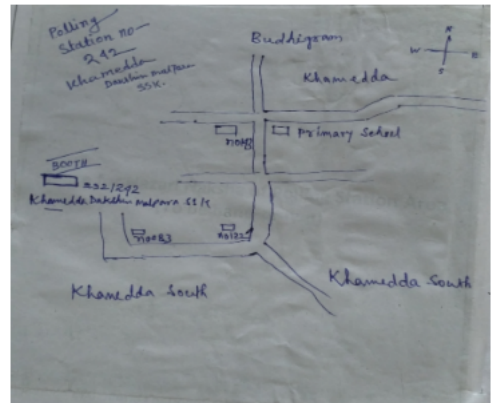 Polling
Station no-
242
Khamedda
Dakshin malpara
SSK.
Buddigram
N
W
E
S
Khamedda
Primary School
BOOTH
242
Khamedda Dakshin malpara SSK
Khamedda South
Khamedda South